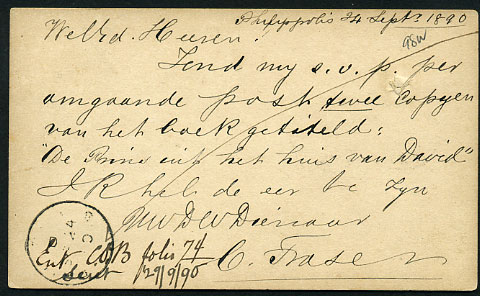 Philippolis 24 Sept. 1890
WelEd. Heeren!
Zend my s.v.p. per
omgaande post twee Copyen
van het boek getiteld:
"De Prins uit het huis van David"
Ik heb de eer te zyn
UwDWDienaar
C. Fraser
Ent. folio 74
sent 29/9/90